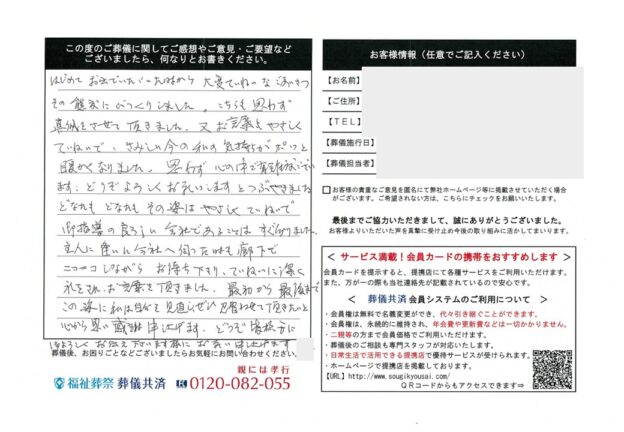 この度のご葬儀に関してご感想やご意見・ご要望など
ございましたら、何なりとお書きください。
はじめて お出でいただいた時から 大変ていねいな ごあいさつ
その 態度に びっくりしました。こちらも 思わず
真似をさせて 頂きました。又 お言葉も やさしく
ていねいで、さみしい 今の 私の 気持ちが ポッと
暖かくなりました。思わず 心の中で 有難うござい
ます、どうぞよろしく お願いします とつぶやきました
どなたも どなたも その姿は やさしく ていねいで
御指導の 良ろしい 会社である ことは すぐ 分りました。
主人に 逢いに 会社へ 伺った時も 廊下で
ニコニコ しながら お待ち 下さり、ていねいに 深く
礼をされ お言葉を 頂きました。最初から 最後まで
この姿に 私は 自分を 見直し ぜひ 見習わせて 頂きたいと
心から 思い 感謝 申し上げます。どうぞ 皆様方に
よろしく お伝え 下さいます様に お願い 申し上げます
葬儀後、お困りごとなどございましたらお気軽にお問い合わせください。
親には孝行
福祉葬祭 葬儀共済 0120-082-055
お客様情報（任意でご記入ください）
【お名前】
【ご住所】
【ＴＥＬ】
【葬儀施行日】
【葬儀担当者】
お客様の貴重なご意見を匿名にて弊社ホームページ等に掲載させていただく場合
がございます。ご希望されない方は、こちらにチェックをお願いいたします。
最後までご協力いただきまして、誠にありがとうございました。
お客様よりいただいた声を真摯に受け止め今後の取り組みに活かしてまいります。
＜ サービス満載！会員カードの携帯をおすすめします ＞
会員カードを提示すると、提携店にて各種サービスをご利用いただけます。
また、万が一の際も当社連絡先が記載されているので安心です。
＜ 葬儀共済 会員システムのご利用について ＞
・会員権は無料で名義変更ができ、代々引き継ぐことができます。
・会員権は、永続的に維持され、年会費や更新費などは一切かかりません。
・二親等の方まで会員価格でご利用いただけます。
・葬儀後のご相談も専門スタッフが対応いたします。
・日常生活で活用できる提携店で優待サービスが受けられます。
・ホームページで提携店を掲載しております。
【URL】http://www.sougikyousai.com/
ＱＲコードからもアクセスできます⇒